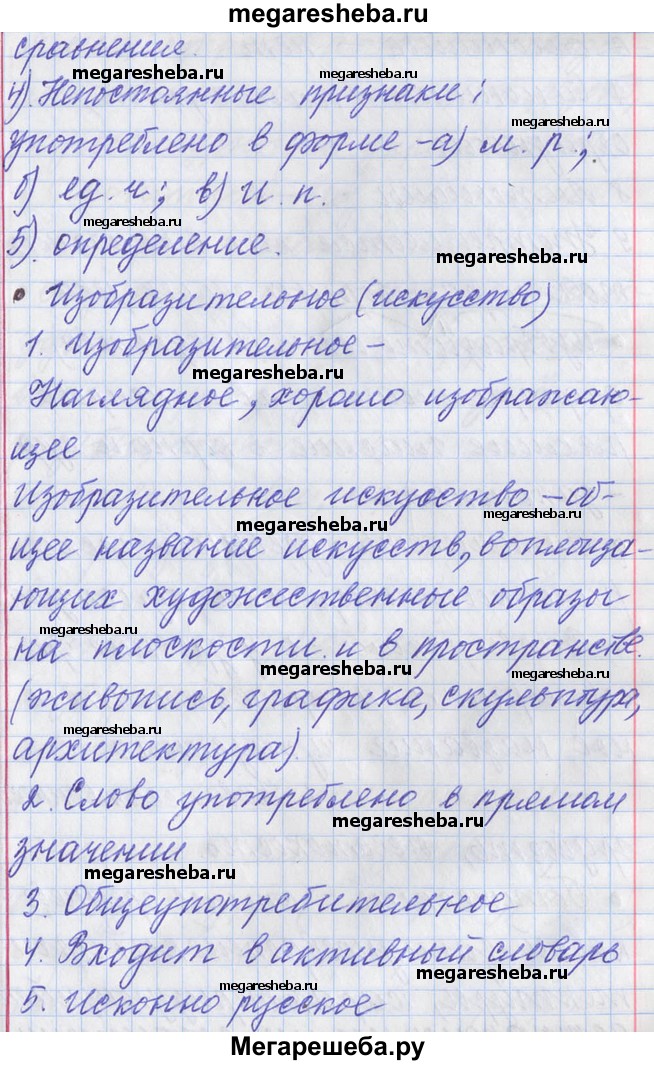 megaresheba.ru
сравнения.
megaresheba.ru
megaresheba.ru
4). Непостоянные признаки:
megaresheba.ru
употреблено в форме –а) м. р.;
б) ед. ч.; в) И. п.
megaresheba.ru
5). определение.
megaresheba.ru
• Изобразительное (искусство)
1. Изобразительное –
megaresheba.ru
Наглядное, хорошо изображаю-
щее
Изобразительное искусство – об-
megaresheba.ru
megaresheba.ru
щее название искусств, воплоща-
ющих художественные образы
megaresheba.ru
на плоскости и в пространстве.
megaresheba.ru
(живопись, графика, скульптура,
megaresheba.ru
архитектура).
2. Слово употреблено в прямом
megaresheba.ru
значении
megaresheba.ru
3. Общеупотребительное
4. Входит в активный словарь
megaresheba.ru
5. Исконно русское
Мегарешеба.ру